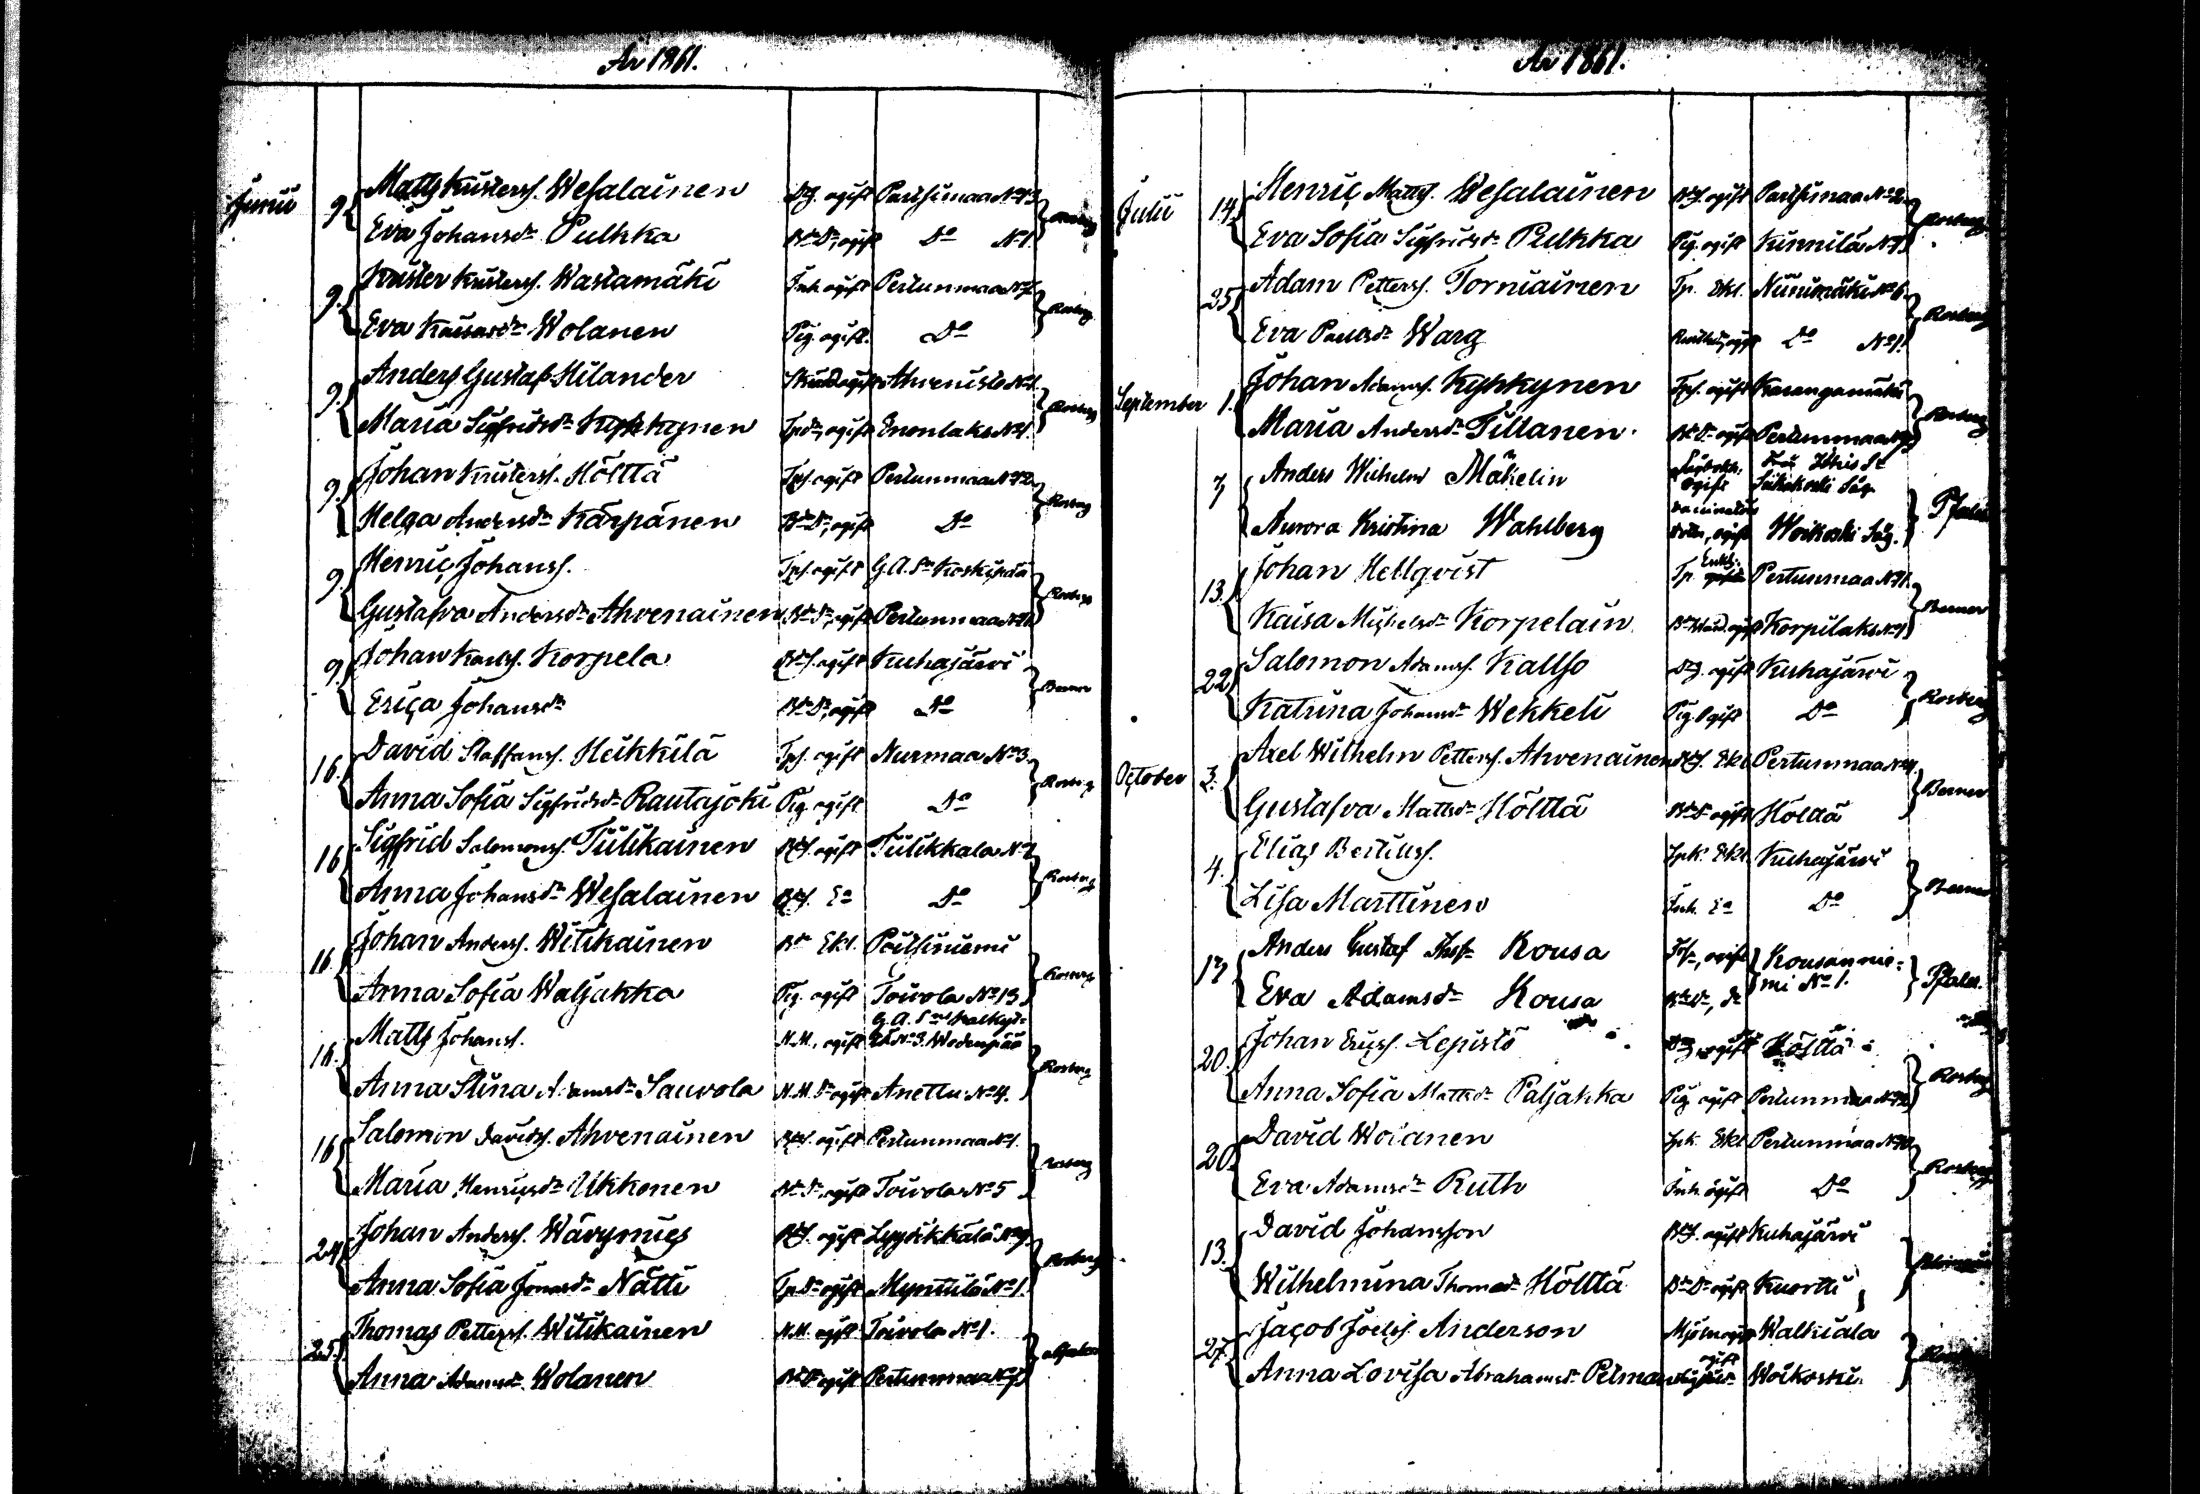 År 1861.
Junii 9. Matts Kristers. Wesalainen Dg. ogift Partsimaa No 13
Eva Johansdr Pulkka Bdr Dr, ogift Do No 1.
9. Krister Kristers. Wastamäki Inh. ogift Pertunmaa Rosberg
Eva Kaisasdr Wolanen Pig. ogift. Do
9. Anders Gustaf Hilander ogift Ahvenisto No 1. Rosberg
Maria Sigfridsdr Kyhkynen Tpdr, ogift Enonlaks No 1.
9. Johan Kristers. Hölttä Tps. ogift Pertunmaa No 12 Rosberg
Helga Andersdr Kärpänen Bdr Dr, ogift Do
9. Henric Johanss. Tps. ogift G.A. Sn Koskipää Rosberg
Gustafva Andersdr Ahvenainen Bdr Dr, ogift Pertunmaa
9. Johan Karlss. Korpela Bds. ogift Kuhajärvi Berner
Erica Johansdr Bdr Dr, ogift Do
16. David Staffans. Heikkilä Tps. ogift Nurmaa No 3. Rosberg
Anna Sofia Sigfridsdr Rautajoki Pig. ogift Do
16 Sigfrid Salomons. Tiilikainen Bds. ogift Tiilikkala No 2 Rosberg
Anna Johansdr Wesalainen Do
16. Johan Anders. Witikainen Bdr Ekl. Poitsiniemi Rosberg
Anna Sofia Waljakka Pig. ogift Toivola No 13
G.A. Sn
16. Matts Johans. N.M., ogift Rosberg
Anna Stina Adamsdr Sauvola N.M. Dr ogift Anettu No 4.
16 Salomon Davids. Ahvenainen Bds. ogift Pertunmaa No 1. Rosberg
Maria Henricsdr Ukkonen Bdr Dr, ogift Toivola No 5
24 Johan Anders. Wävymies Bds. ogift Lyytikkälä No 9. Rosberg
Anna Sofia Jonasdr Nätti Tp. Dr ogift Myntilä No 1.
25. Thomas Petters. Witikainen N.M. ogift Toivola No 1.
Anna Adamsdr Wolanen Bdr Dr ogift Pertunmaa
År 1861.
Julii 14. Henric Matts. Wesalainen Bds. ogift Partsimaa No 2. Rosberg
Eva Sofia Sigfridsdr Pulkka Pig. ogift Kinnilä
25 Adam Petters. Torniainen Tp. Ekl. Niinimäki No 6. Rosberg
Eva Paulsdr Warg Do No 1.
September 1. Johan Adams. Kyhkynen Tps. ogift Karangamäki Rosberg
Maria Andersdr Tillanen. Bdr Dr ogift Pertunmaa
7 Anders Wilhelm Mäkelin ogift Såg. Pfaler
Aurora Kristina Wahlberg ogift Woikoski Såg.
13. Johan Hellqvist Tp. Enkl. Pertunmaa Berner
Kaisa Michelsdr Korpelain Korpilaks No 1
22 Salomon Adams. Kallso Dg. ogift Kuhajärvi Rosberg
Katrina Johansdr Wekkeli Pig. Ogift Do
October 3. Axel Wilhelm Petters. Ahvenainen Bds. Ekl. Pertunmaa Berner
Gustafva Mattsdr Hölttä Bdr Dr ogift Höltä
4. Elias Bertils. Inh. Ekl. Kuhajärvi Berner
Lisa Marttinen Inh. Ea Do
17 Anders Gustaf Kousa ogift Kousannie= Pfaler.
Eva Adamsdr Kousa mi No 1.
20. Johan Erics. Lepistö ogift Hölttä Rosberg
Anna Sofia Mattsdr Paljakka Pig. ogift Pertunmaa
20. David Woianen Inh. Ekl. Pertunmaa Rosberg
Eva Adamsdr Ruth Inh. ogift Do
13. David Johansson Bds. ogift Kuhajärvi
Wilhelmina Thomasdr Hölttä Bdr Dr ogift Kuortti
27. Jacob Joels. Anderson Walkiala
Anna Lovisa Abrahamsdr Pelma ogift Woikoski.